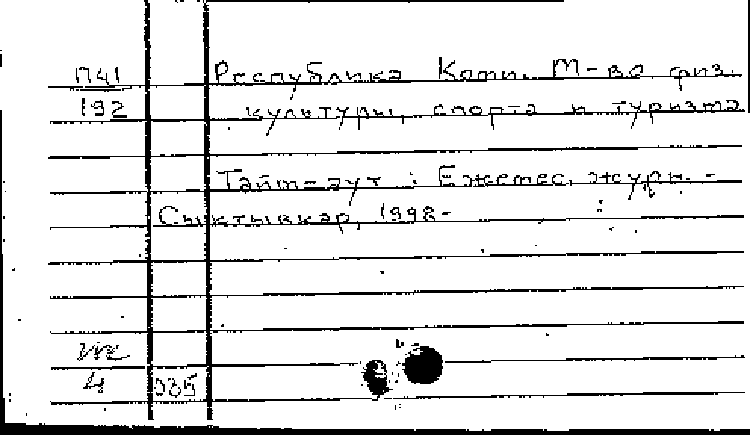 П41 Республика Коми. М-во физ.
192 культуры, спорта и туризма
Тайм-аут : Ежемес. журн. -
Сыктывкар, 1998-
4